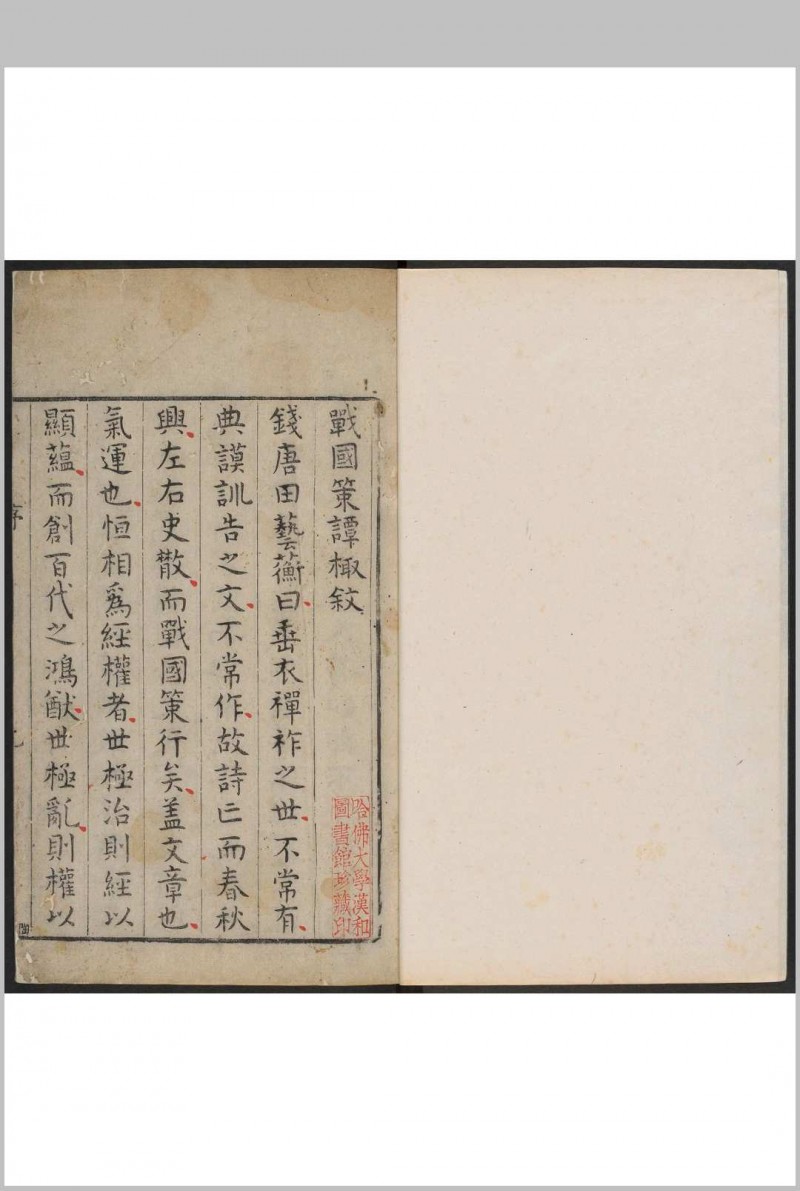 戰國策譚棷敘
錢唐田藝蘅曰垂衣禪祚之世不常有
典謨訓告之文不常作故詩亡而春秋
興左右史散而戰國策行矣盖文章也
氣運也恒相為經權者世極治則經以
顯蘊而創百代之鴻猷世極亂則權以
序
哈佛大學漢和
圖書館珍藏印